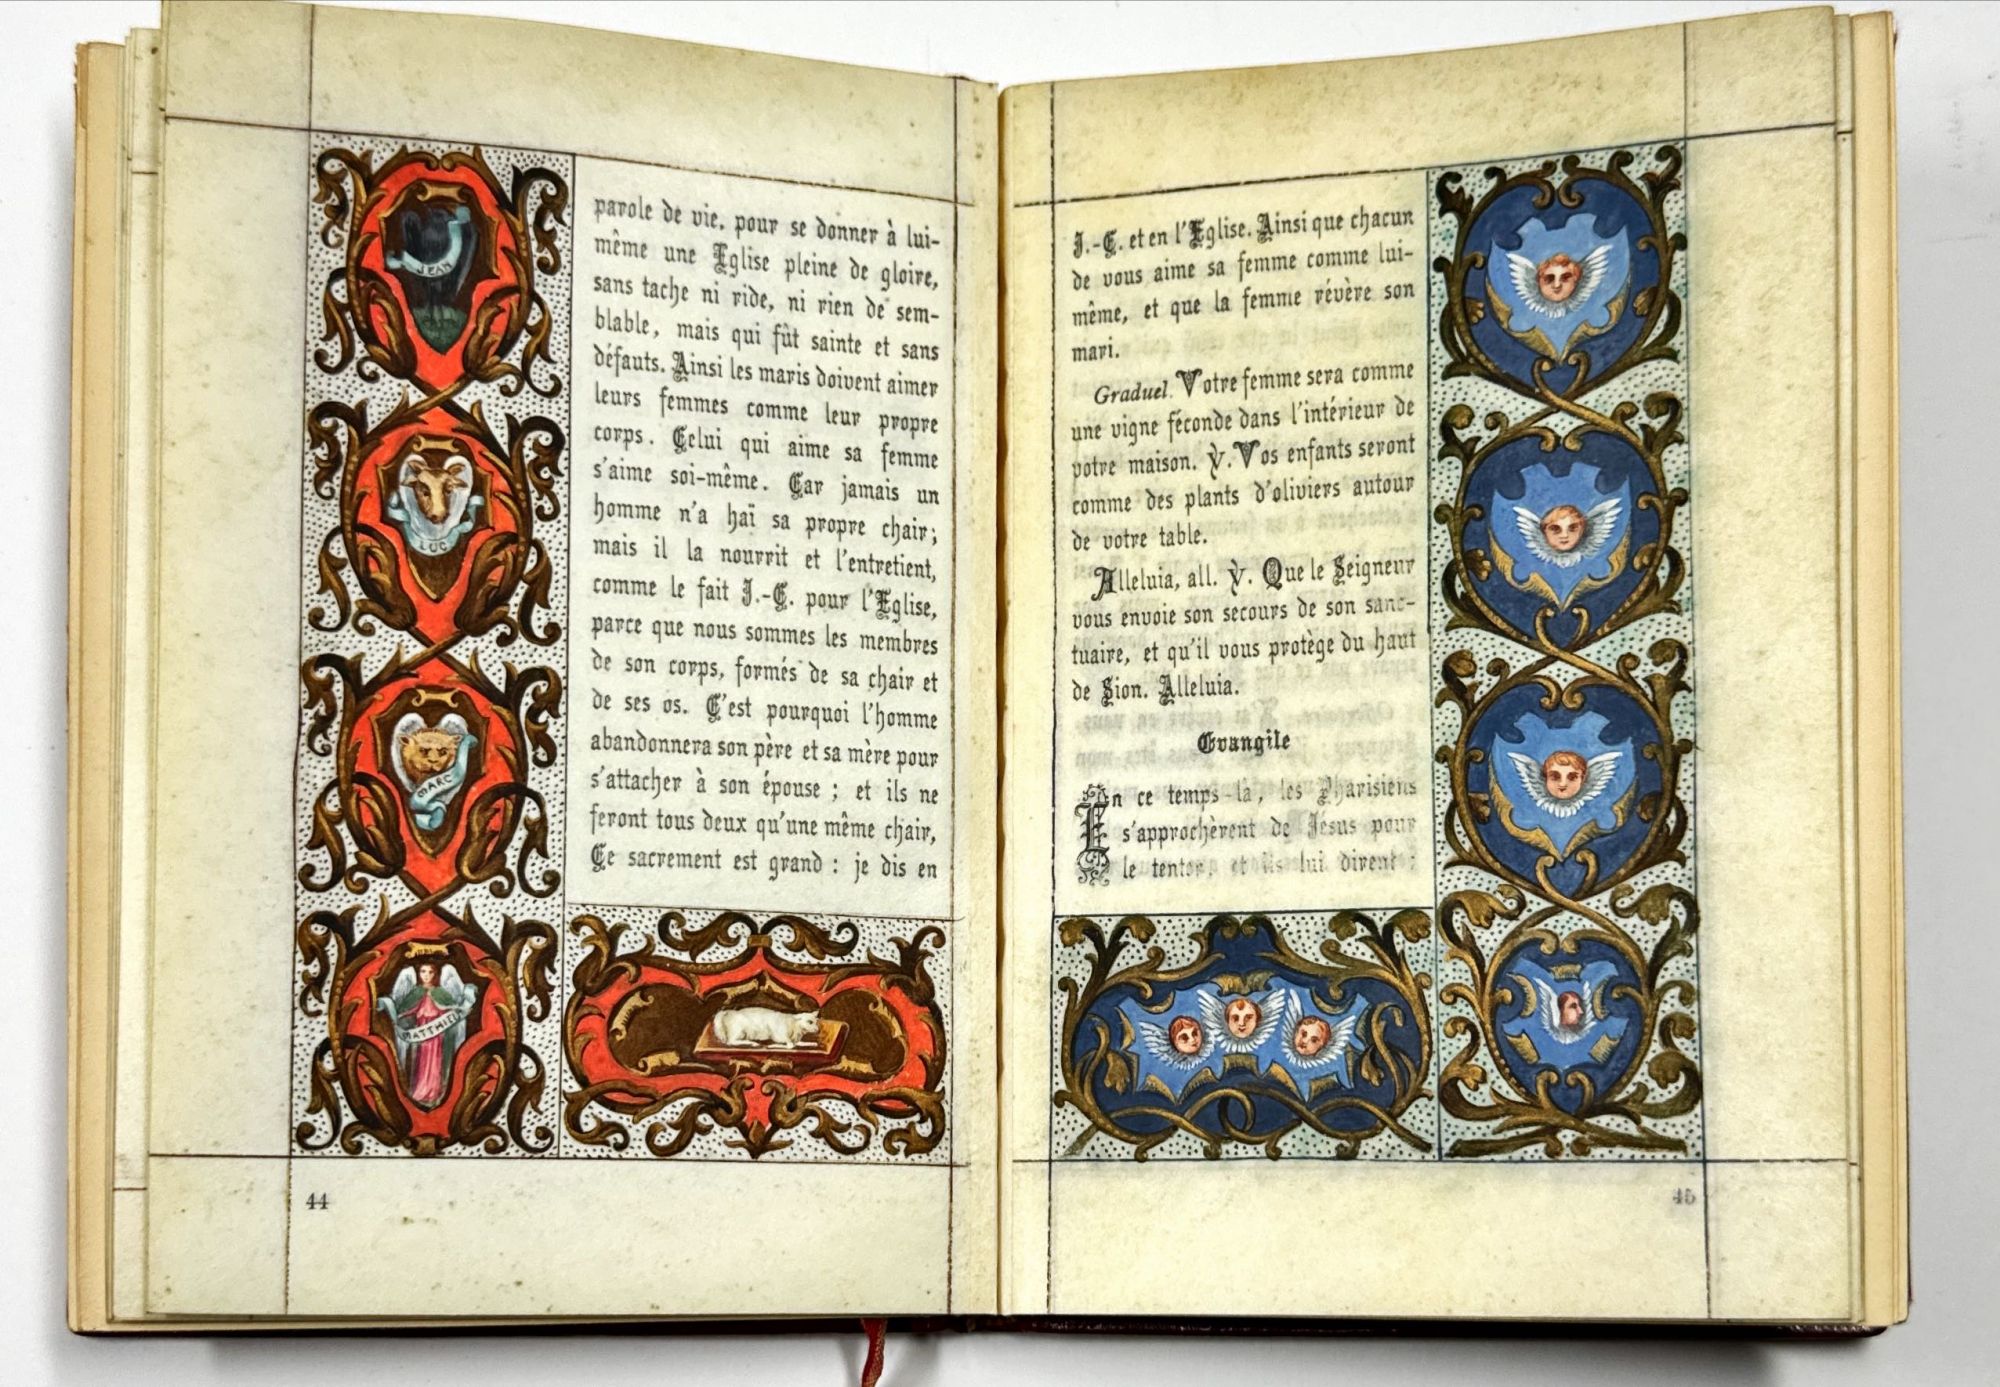 JEAN
LUC
MARC
MATTHIEU
parole de vie, pour se donner à lui-
même une Eglise pleine de gloire,
sans tache ni ride, ni rien de sem-
blable, mais qui fût sainte et sans
défauts. Ainsi les maris doivent aimer
leurs femmes comme leur propre
corps. Celui qui aime sa femme
s'aime soi-même. Car jamais un
homme n'a haï sa propre chair;
mais il la nourrit et l'entretient,
comme le fait J.-C. pour l'Eglise,
parce que nous sommes les membres
de son corps, formés de sa chair et
de ses os. C'est pourquoi l'homme
abandonnera son père et sa mère pour
s'attacher à son épouse ; et ils ne
feront tous deux qu'une même chair,
Ce sacrement est grand : je dis en
44
J.-C. et en l'Eglise. Ainsi que chacun
de vous aime sa femme comme lui-
même, et que la femme révère son
mari.
Graduel. Votre femme sera comme
une vigne féconde dans l'intérieur de
votre maison. ℣. Vos enfants seront
comme des plants d'oliviers autour
de votre table.
Alleluia, all. ℣. Que le Seigneur
vous envoie son secours de son sanc-
tuaire, et qu'il vous protège du haut
de Sion. Alleluia.
Evangile
En ce temps-là, les Pharisiens
s'approchèrent de Jésus pour
le tenter, et ils lui dirent :
45